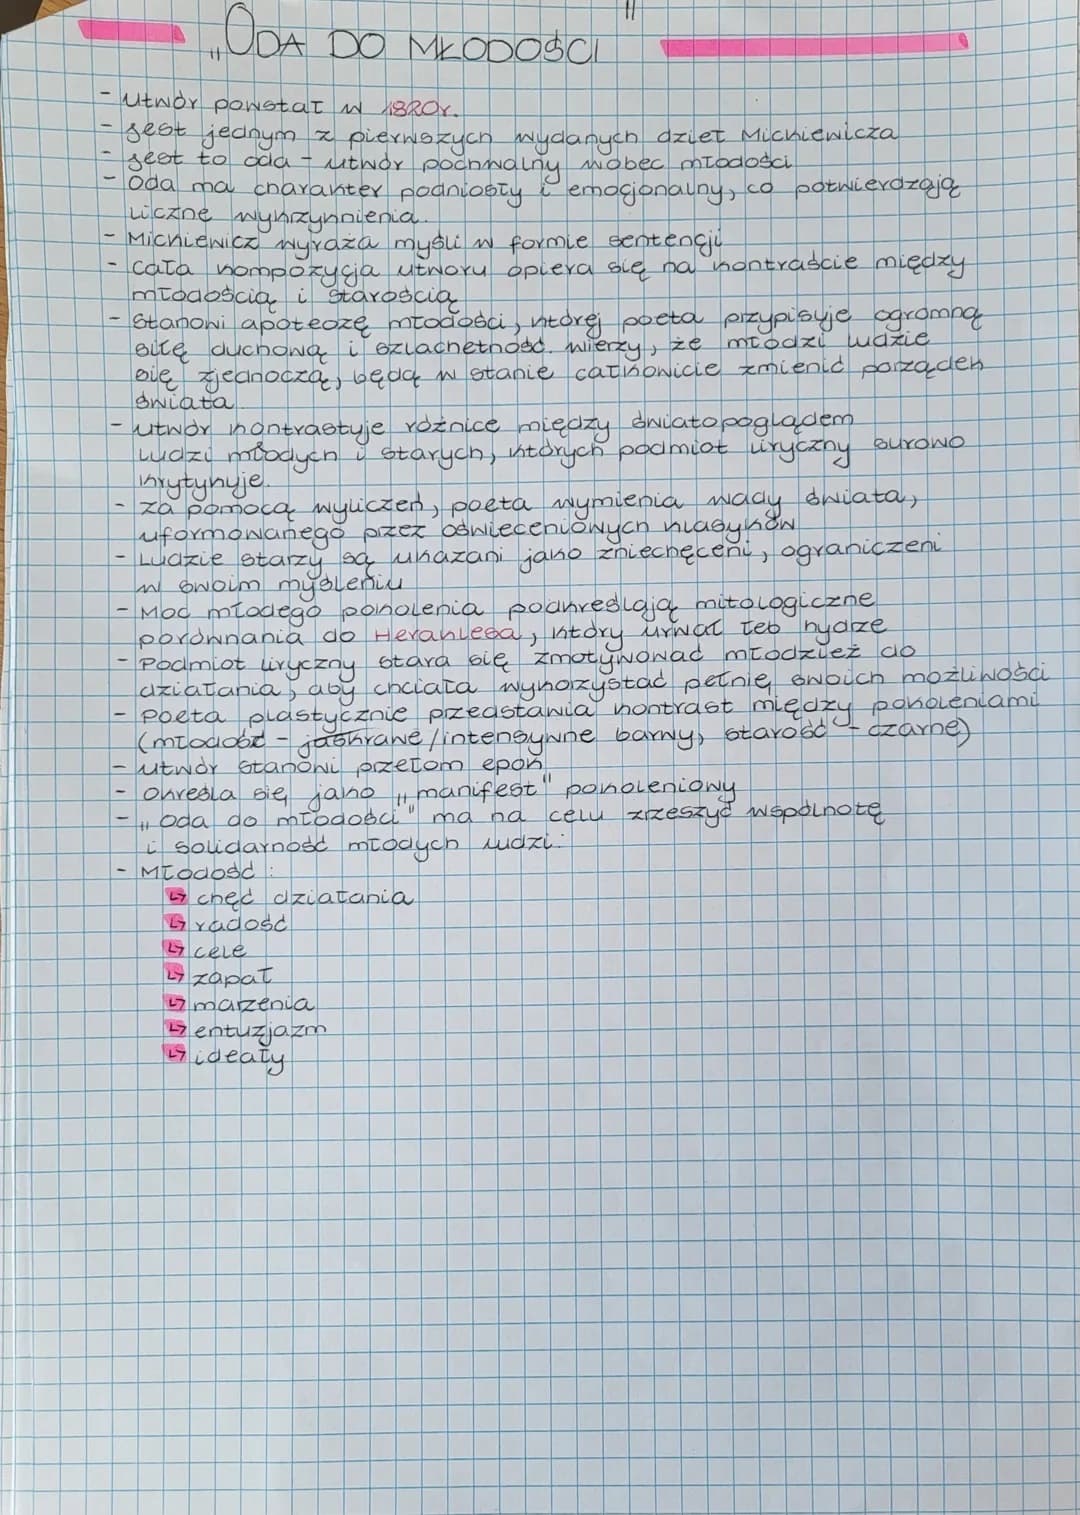 „ODA DO MŁODOŚCI"
- utwór powstał w 1820r.
- jest jednym z pierwszych wydanych dzieł Mickiewicza
- jest to oda - utwór pochwalny wobec młodości
- Oda ma charakter podniosły i emocjonalny, co potwierdzają
liczne wykrzyknienia.
- Mickiewicz wyraża myśli w formie sentencji
- cała kompozycja utworu opiera się na kontraście między
młodością i starością
- Stanowi apoteozę młodości, której poeta przypisuje ogromną
siłę duchową i szlachetność. wierzy, że młodzi ludzie
się zjednoczą, będą w stanie całkowicie zmienić porządek
świata
- utwór kontrastuje różnice między światopoglądem
ludzi młodych i starych, których podmiot liryczny surowo
krytykuje.
- za pomocą wyliczeń, poeta wymienia wady świata,
uformowanego przez oświeceniowych klasyków
- Ludzie starzy są ukazani jako zniechęceni, ograniczeni
w swoim myśleniu
- Moc młodego pokolenia podkreślają mitologiczne
porównania do Heraklesa, który urwał łeb hydrze
- Podmiot liryczny stara się zmotywować młodzież do
działania, aby chciała wykorzystać pełnię swoich możliwości
- Poeta plastycznie przedstawia kontrast między pokoleniami
(młodość - jaskrawe/intensywne barwy, starość - czarne)
- utwór stanowi przełom epok
- Określa się jako „manifest" pokoleniowy
- „Oda do młodości" ma na celu zrzeszyć wspólnotę
i solidarność młodych ludzi.
- Młodość:
↳ chęć działania
↳ radość
↳ cele
↳ zapał
↳ marzenia
↳ entuzjazm
↳ ideały